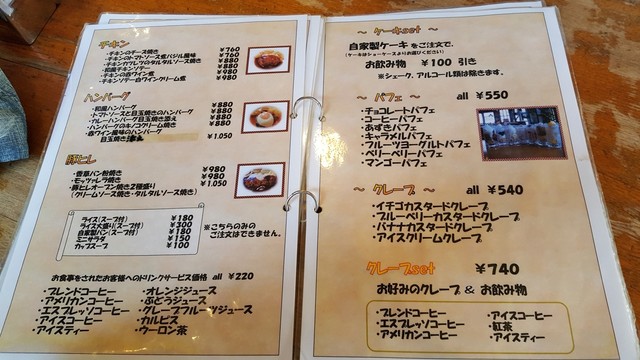 チキン
・チキンのチーズ焼き ¥760
・チキンのトマトソース煮バジル風味 ¥760
・チキンカツレツのタルタルソース焼き ¥880
・和風チキンソテー ¥880
・チキンの赤ワイン煮 ¥980
・チキンソテー白ワインクリーム煮 ¥980
ハンバーグ
・和風ハンバーグ ¥880
・トマトソースと目玉焼きのハンバーグ ¥880
・カレーハンバーグ目玉焼き添え ¥880
・ハンバーグのキノコクリーム焼き ¥880
・赤ワイン風味のハンバーグ
目玉焼き添え ¥1.050
豚ヒレ
・香草パン粉焼き ¥980
・モッツァレラ焼き ¥980
・豚ヒレオーブン焼き2種盛り ¥1.050
(クリームソース焼き・タルタルソース焼き)
ライス(スープ付) ¥180
ライス大盛り(スープ付) ¥300
自家製パン(スープ付) ¥180
ミニサラダ ¥150
カップスープ ¥100
※こちらのみの
ご注文はできません。
お食事をされたお客様へのドリンクサービス価格 all ¥220
・ブレンドコーヒー ・オレンジジュース
・アメリカンコーヒー ・ぶどうジュース
・エスプレッソコーヒー ・グレープフルーツジュース
・アイスコーヒー ・カルピス
・アイスティー ・ウーロン茶
～ ケーキset ～
自家製ケーキ をご注文で、
(ケーキはショーケースよりお選びください)
お飲み物 ¥100 引き
※シェーク、アルコール類は除きます。
～ パフェ ～ all ¥550
・チョコレートパフェ
・コーヒーパフェ
・あずきパフェ
・キャラメルパフェ
・フルーツヨーグルトパフェ
・ベリーベリーパフェ
・マンゴーパフェ
～ クレープ ～ all ¥540
・イチゴカスタードクレープ
・ブルーベリーカスタードクレープ
・バナナカスタードクレープ
・アイスクリームクレープ
クレープset ¥740
お好みのクレープ & お飲み物
・ブレンドコーヒー ・アイスコーヒー
・エスプレッソコーヒー ・紅茶
・アメリカンコーヒー ・アイスティー